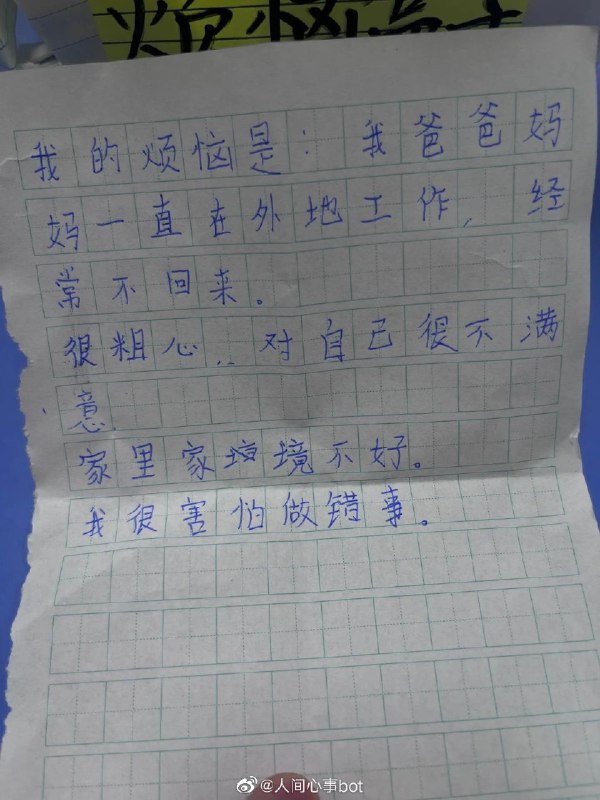 烦恼
我的烦恼是：我爸爸妈
妈一直在外地工作，经
常不回来。
很粗心..对自己很不满
意.
家里家境境不好。
我很害怕做错事。
@人间心事bot